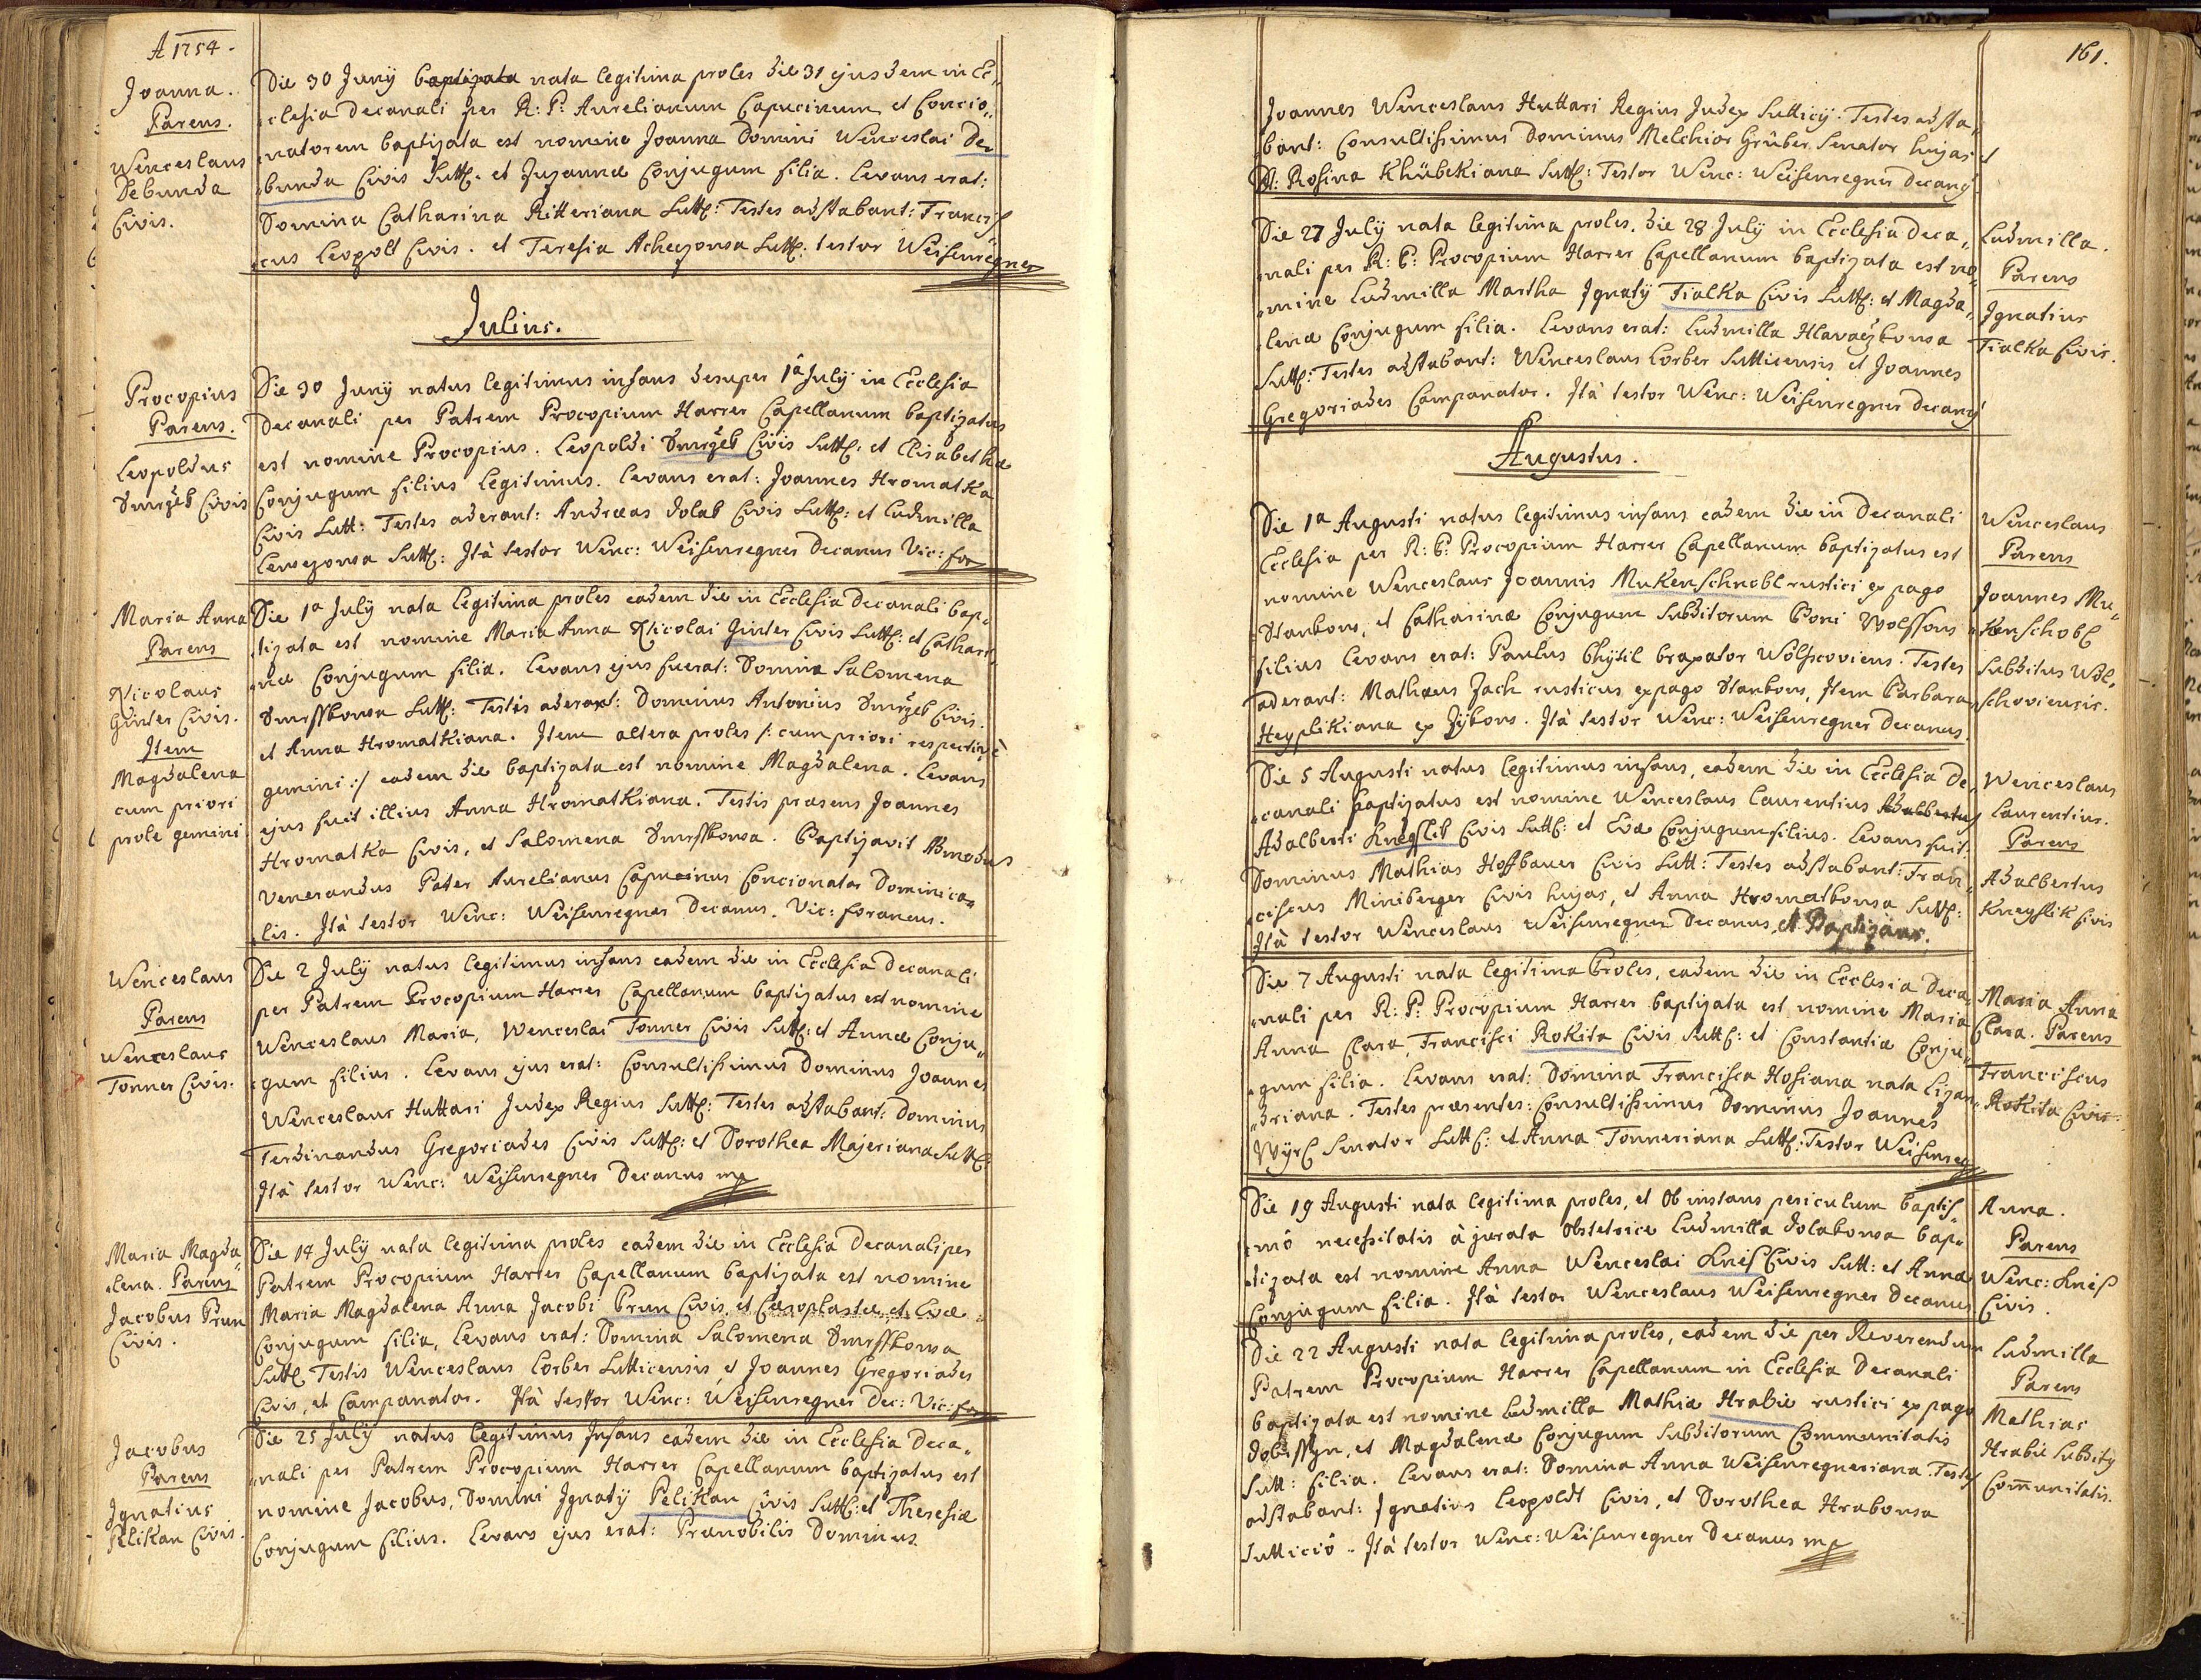 A 1754.
Joanna.
Parens.
Wenceslaus
Debunda
Civis.
Die 30 Junÿ baptizata nata legitima proles die 31 ejusdem in Ec„
„clesia Decanali per R: P: Aurelianum Capucinum et Concio„
„natorem baptizata est nomine Joanna Domini Wenceslai De„
„bunda Civis Sutt: et Zuzannæ Conjugum filia. Levans erat:
Domina Catharina Ritteriana Sutt: Testes adstabant: Francis„
„cus Leopolt Civis. et Teresia Sutt: testor Weisenregner
Julius.
Procopius
Parens.
Leopoldus
Smržek Civis
Die 30 Junÿ natus legitimus infans desuper 1â Julÿ in Ecclesia
Decanali per Patrem Procopium Harrer Capellanum baptizatus
est nomine Procopius. Leopoldi Smržek Civis Sutt: et Elisabethæ
Conjugum filius legitimus. Levans erat: Joannes Hromatka
Civis Sutt: Testes aderant: Andræas Dolab Civis Sutt: et Ludmilla
Sutt: Ità testor Wenc: Weisenregner Decanus Vic: for
Maria Anna
Parens
Nicolaus
Ginter Civis.
Item
Magdalena
cum priori
prole gemini
Die 1a Julÿ nata legitima proles eadem die in Ecclesia Decanali bap„
„tizata est nomine Maria Anna Nicolai Ginter Civis Sutt: et Cathari„
„næ Conjugum filia. Levans ejus fuerat: Domina Salomena
Smrsskowa Sutt: Testes aderant: Dominus Antonius Smržek Civis.
et Anna Hromatkiana. Item altera proles /: cum priori respectivè
gemini :/ eadem die baptizata est nomine Magdalena. Levans
ejus fuit illius Anna Hromatkiana. Testis præsens Joannes
Hromatka Civis, et Salomena Smrsskowa. Baptizavit Admodus
Venerandus Pater Aurelianus Capucinus Concionator Dominica„
„lis. Ità testor Wenc: Weisenregner Decanus. Vic: foraneus.
Wenceslaus
Parens
Wenceslaus
Tonner Civis.
Die 2 Julÿ natus legitimus infans eadem die in Ecclesia Decanali
per Patrem Procopium Harrer Capellanum baptizatus est nomine
Wenceslaus Maria, Wenceslai Tonner Civis Sutt: et Annæ Conju„
„gum filius. Levans ejus erat: Consultissimus Dominus Joannes
Wenceslaus Huttari Judex Regius Sutt: Testes adstabant: Dominus
Ferdinandus Gregoriades Civis Sutt: et Dorothea Majeriana Sutt:
Ità testor Wenc: Weisenregner Decanus mp
Maria Magda„
„lena. Parens
Jacobus Prun
Civis.
Die 14 Julÿ nata legitima proles eadem die in Ecclesia Decanali per
Patrem Procopium Harrer Capellanum baptizata est nomine
Maria Magdalena Anna Jacobi Prun Civis, et Ceroplastæ, et Evæ
Conjugum filia, Levans erat: Domina Salomena Smrsskowa
Sutt: Testis Wenceslaus Lorber Sutticensis et Joannes Gregoriades
Civis, et Campanator. Ità testor Wenc: Weisenregner Dec: Vic: for
Jacobus
Parens
Ignatius
Pelikan Civis.
Die 25 Julÿ natus legitimus Infans eadem die in Ecclesia Deca„
„nali per Patrem Procopium Harrer Capellanum baptizatus est
nomine Jacobus, Domini Ignatÿ Pelikan Civis Sutt: et Theresiæ
Conjugum filius. Levans ejus erat: Prænobilis Dominus
161.
Joannes Wenceslaus Huttari Regius Judex Sutticÿ. Testes adsta„
„bant: Consultissimus Dominus Melchior Grüber Senator hujas et
D: Rosina Khübekiana Sutt: Testor Wenc: Weisenregner Decanꝰ
Die 27 Julÿ nata legitima proles. die 28 Julÿ in Ecclesia Deca„
„nali per R: P: Procopium Harrer Capellanum baptizata est no„
„mine Ludmilla Martha Ignatÿ Fialka Civis Sutt: et Magda„
„lenæ Conjugum filia. Levans erat: Ludmilla Hlavaczkowa
Sutt: Testes adstabant: Wenceslaus Lorber Sutticensis et Joannes
Gregoriades Campanator. Ità testor Wenc: Weisenregner Decanꝰ
Ludmilla.
Parens
Ignatius
Fialka Civis.
Augustus.
Die 1a Augusti natus legitimus infans eadem die in Decanali
Ecclesia per R: P: Procopium Harrer Capellanum baptizatus est
nomine Wenceslaus Joannis Mukenschnobl rustici ex pago
Stankow, et Catharinæ Conjugum Subditorum Boni Wolsson
filius Levans erat: Paulus Chÿtil braxator Wolschoviens. Testes
aderant: Mathæus Zach rusticus ex pago Stankow, Item Barbara
Heyplikiana ex . Ità testor Wenc: Weisenregner Decanus.
Wenceslaus
Parens
Joannes Mu„
„kenschobl
Subditus Wol„
„schoviensis.
Die 5 Augusti natus legitimus infans, eadem die in Ecclesia De„
„canali baptizatus est nomine Wenceslaus Laurentius Adalbertus
Adalberti Knegslik Civis Sutt: et Evæ Conjugum filius. Levans fuit:
Dominus Mathias Hoffbauer Civis Sutt: Testes adstabant: Fran„
„ciscus Miniberger Civis hujas, et Anna Hromatkowa Sutt:
Ità testor Wenceslaus Weisenregner Decanus, et Baptizans.
Wenceslaus
Laurentius.
Parens
Adalbertus
Kneyslik Civis
Die 7 Augusti nata legitima Proles, eadem die in Ecclesia Deca„
„nali per R: P: Procopium Harrer baptizata est nomine Maria
Anna Clara, Francisci Rokita Civis Sutt: et Constantiæ Conju„
„gum filia. Levans erat: Domina Francisca Hosiana nata Lizan„
„driana. Testes præsentes: Consultissimus Dominus Joannes
Wÿrl Senator Sutt: et Anna Tonneriana Sutt: Testor Weisenreg
Maria Anna
Clara. Parens
Franciscus
Rokita Civis.
Die 19 Augusti nata legitima proles, et Ob instans periculum baptis„
„mô necessitatis à jurata Obstetrice Ludmilla Dolabowa bap„
„tizata est nomine Anna Wenceslai Knés Civis Sutt: et Annæ
Conjugum filia. Ità testor Wenceslaus Weisenregner Decanus
Anna.
Parens
Wenc: Knés
Civis.
Die 22 Augusti nata legitima proles, eadem die per Reverendum
Patrem Procopium Harrer Capellanum in Ecclesia Decanali
baptizata est nomine Ludmilla Mathiæ Hrabie rustici ex pago
Dobrssyn, et Magdalenæ Conjugum Subditorum Communitatis
Sutt: filia. Levans erat: Domina Anna Weisenregneriana. Testes
adstabant: Ignatius Leopoldt Civis, et Dorothea Hrabowa
Sutticiô. Ità testor Wenc: Weisenregner Decanus mp
Ludmilla
Parens
Mathias
Hrabie Subditꝰ
Com̅unitatis.